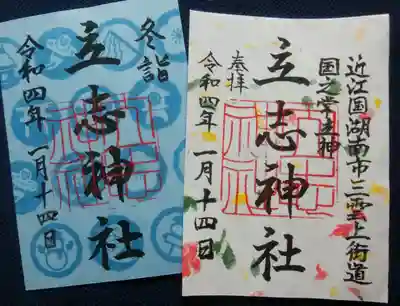 近江国湖南市三雲上街道
国之常立神
立志神社
奉拝
令和四年 一月十四日
冬詣
立志神社
令和四年 一月十四日